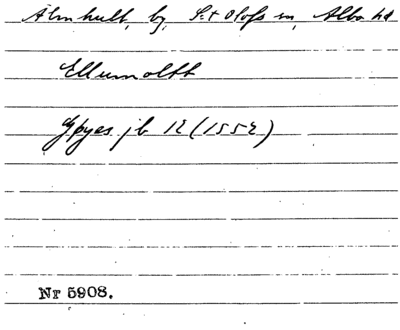 Älmhult, by, S:t Olofs sn, Albo hd
Ellumoltt
Gpyes jb 12 (1552)
Nr 5908.